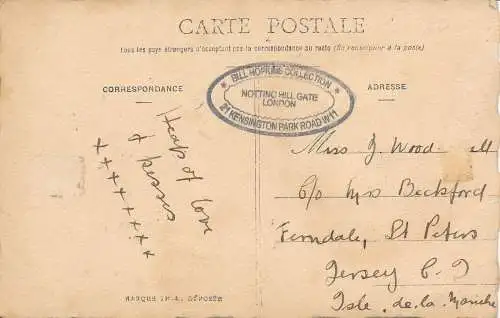 CARTE POSTALE
Tous les pays étrangers n'acceptent pas la correspondance au recto (Se renseigner à la poste)
CORRESPONDANCE
ADRESSE
BILL HOPKINS COLLECTION
NOTTING HILL GATE
LONDON
21 KENSINGTON PARK ROAD W11
Heap of love
& kisses
+ + + + + + + +
Miss J Wood
C/o Mrs Beckford
Ferndale, St Peters
Jersey C. I
Isle de la Manche
MARQUE DÉPOSÉE